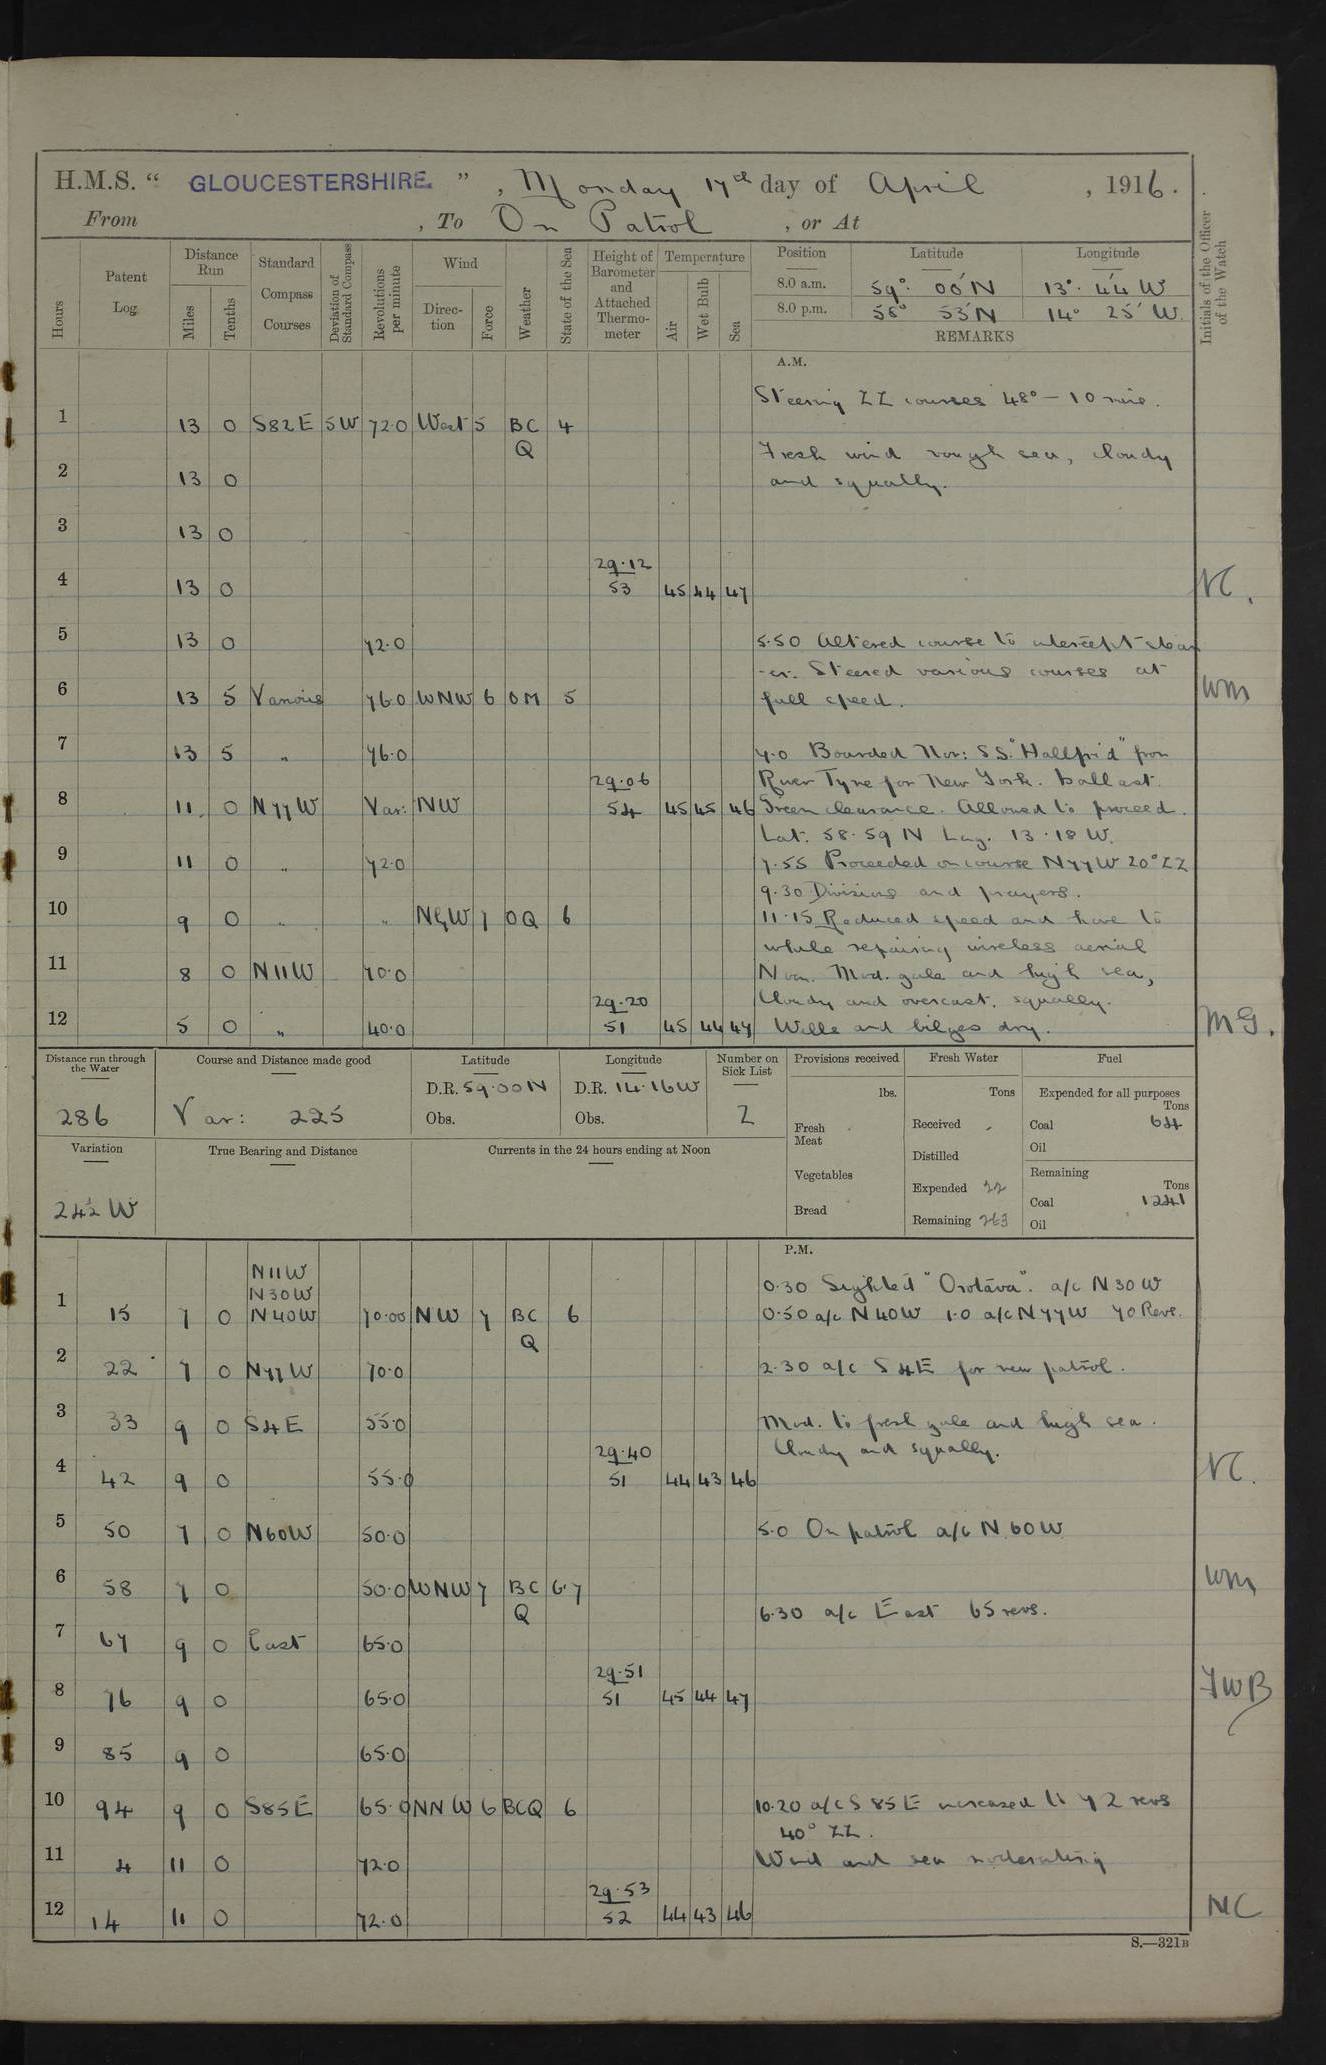 H.M.S. “ GLOUCESTERSHIRE. ” , Monday 17th day of April , 1916.
From , To On Patrol , or At
Hours Patent Log Distance Run Miles Tenths Standard Compass Courses Deviation of Standard Compass Revolutions per minute Wind Direction Force Weather State of the Sea Height of Barometer and Attached Thermometer Temperature Air Wet Bulb Sea Initials of the Officer of the Watch
Position Latitude Longitude
8.0 a.m. 59° 00' N 13° 44' W
8.0 p.m. 58° 53' N 14° 25' W.
REMARKS
A.M.
Steering ZZ courses 48° – 10 mins.
1 13 0 S82E 5W 72.0 West 5 BC Q 4
Fresh wind rough sea, cloudy
2 13 0 and squally.
3 13 0
4 13 0 29.12 53 45 44 47 NC.
5 13 0 72.0 5.50 Altered course to intercept steam
-er. Steered various courses at
6 13 5 Various 76.0 WNW 6 OM 5 full speed. WM
7 13 5 " 76.0 7.0 Boarded Nor: SS. "Hallfrid" from
River Tyne for New York. ballast.
8 11. 0 N77W Var: NW 29.06 54 45 45 46 Green clearance. Allowed to proceed.
Lat. 58.59 N Long. 13.18 W.
9 11 0 " 72.0 7.55 Proceeded on course N77W 20° ZZ
9.30 Divisions and prayers.
10 9 0 " " NWW 7 OQ 6 11.15 Reduced speed and hove to
while repairing wireless aerial
11 8 0 N11W 70.0 Noon. Mod. gale and high sea,
cloudy and overcast. squally.
12 5 0 " 40.0 29.20 51 45 44 47 Wells and bilges dry. MG.
Distance run through the Water Course and Distance made good Latitude Longitude Number on Sick List Provisions received Fresh Water Fuel
286 Var: 225 D.R. 59.00N D.R. 14.16W 2
Obs. Obs.
lbs. Tons Expended for all purposes Tons
Fresh Meat Received Coal 64
Oil
Vegetables Distilled Remaining Tons
Bread Expended 22 Coal 1241
Remaining 263 Oil
Variation True Bearing and Distance Currents in the 24 hours ending at Noon
24½ W
P.M.
N11W
N30W 0.30 Sighted "Orotava". a/c N30W
1 15 7 0 N40W 70.00 NW 7 BC Q 6 0.50 a/c N40W 1.0 a/c N77W 70 Revs.
2 22 7 0 N77W 70.0 2.30 a/c S4E for new patrol.
3 33 9 0 S4E 55.0 Mod. to fresh gale and high sea.
Cloudy and squally.
4 42 9 0 55.0 29.40 51 44 43 46 NC.
5 50 7 0 N60W 50.0 5.0 On patrol a/c N60W
6 58 7 0 50.0 WNW 7 BC Q 6.7 WM
6.30 a/c East 65 revs.
7 67 9 0 East 65.0
8 76 9 0 65.0 29.51 51 45 44 47 FWB
9 85 9 0 65.0
10 94 9 0 S85E 65.0 NNW 6 BCQ 6 10.20 a/c S85E increased to 72 revs
40° ZZ.
11 4 11 0 72.0 Wind and sea moderating
12 14 11 0 72.0 29.53 52 44 43 46 NC
S.—321B